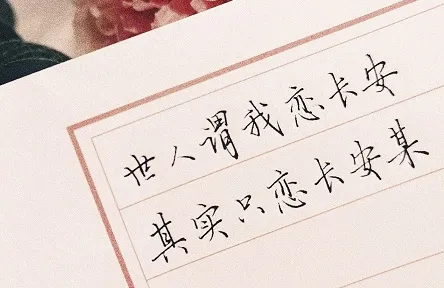 世人谓我恋长安
其实只恋长安某